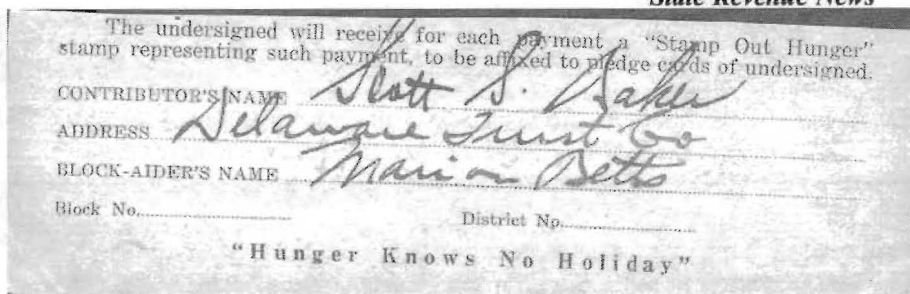 State Revenue News
The undersigned will receive for each payment a "Stamp Out Hunger"
stamp representing such payment, to be affixed to pledge cards of undersigned.
CONTRIBUTOR'S NAME Scott S. Baker
ADDRESS Delaware Trust Co
BLOCK-AIDER'S NAME Marion Betts
Block No.
District No.
"Hunger Knows No Holiday"